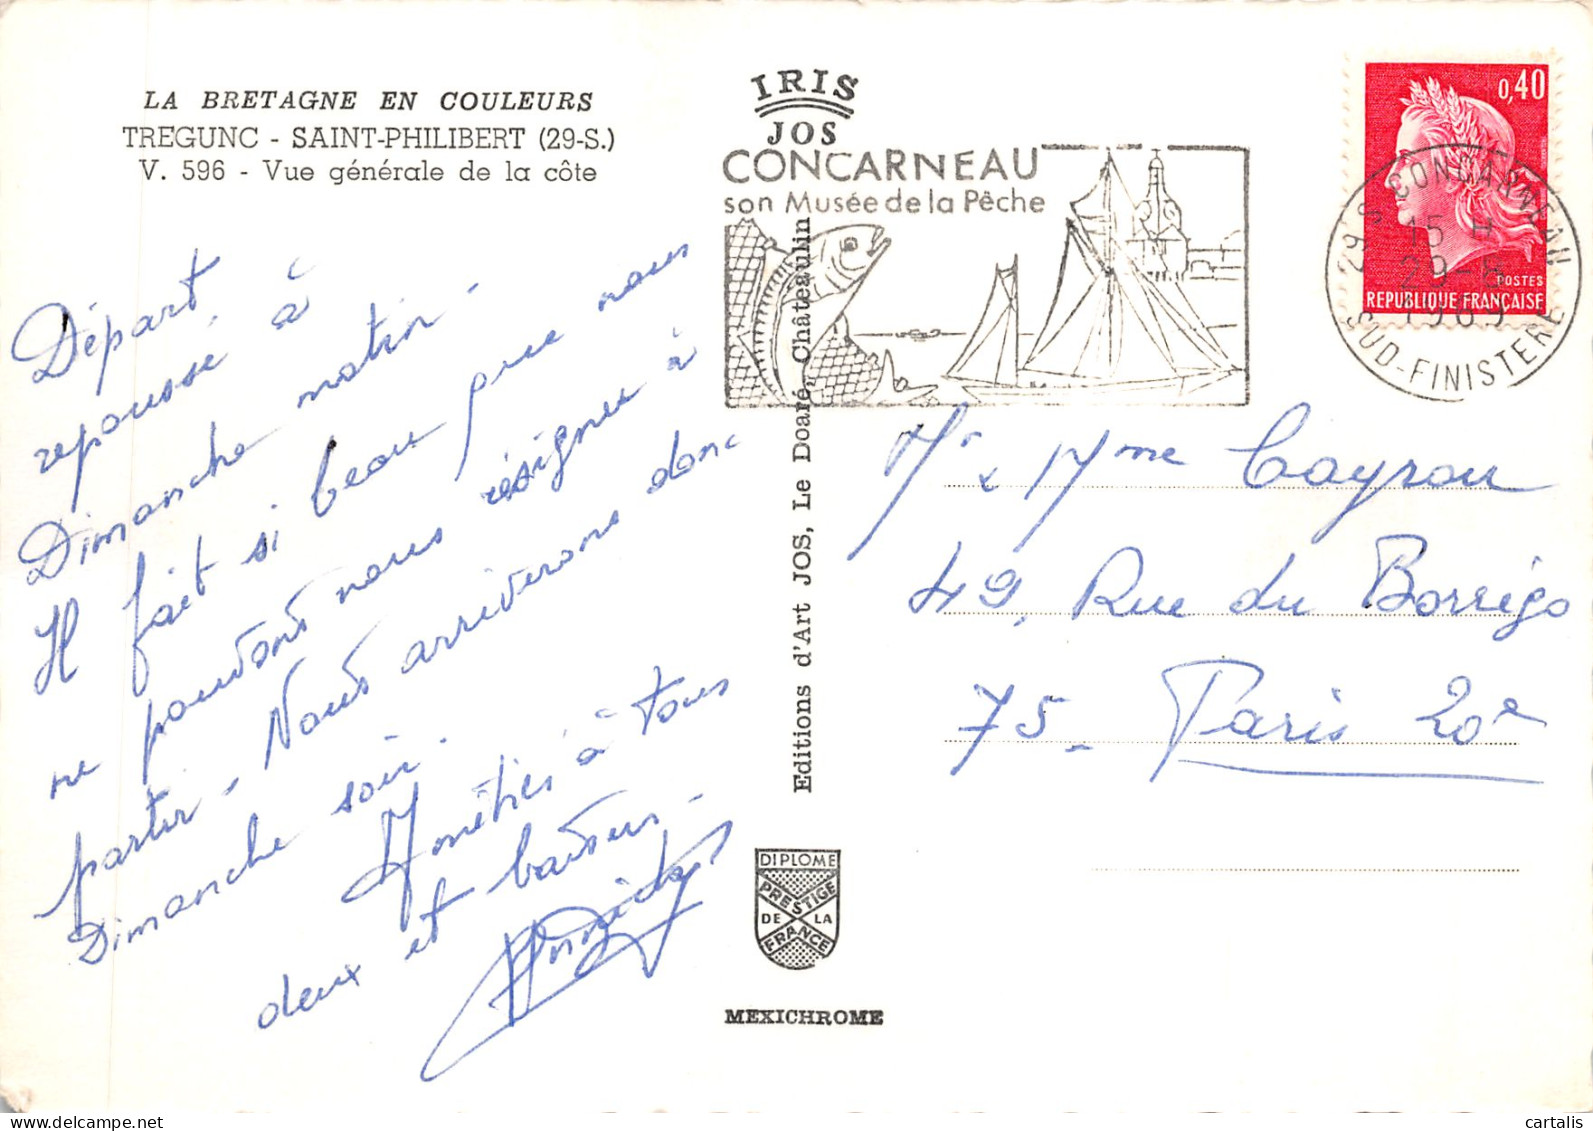 LA BRETAGNE EN COULEURS
TREGUNC - SAINT-PHILIBERT (29-S.)
V. 596 - Vue générale de la côte
Départ
repoussé à
Dimanche matin.
Il fait si beau que nous
ne pouvons nous résigner à
partir. Nous arriverons donc
Dimanche soir.
Amitiés à tous
deux et baisers.
IRIS
JOS
CONCARNEAU
son Musée de la Pêche
Editions d'Art JOS, Le Doaré, Châteaulin
DIPLOME
PRESTIGE
DE LA
FRANCE
MEXICHROME
0,40
POSTES
REPUBLIQUE FRANÇAISE
29 S CONCARNEAU
15 H
29-5
1969
SUD-FINISTERE
Mr & Mme Cayrou
49, Rue du Borrégo
75 - Paris 20e
www.delcampe.net
cartalis